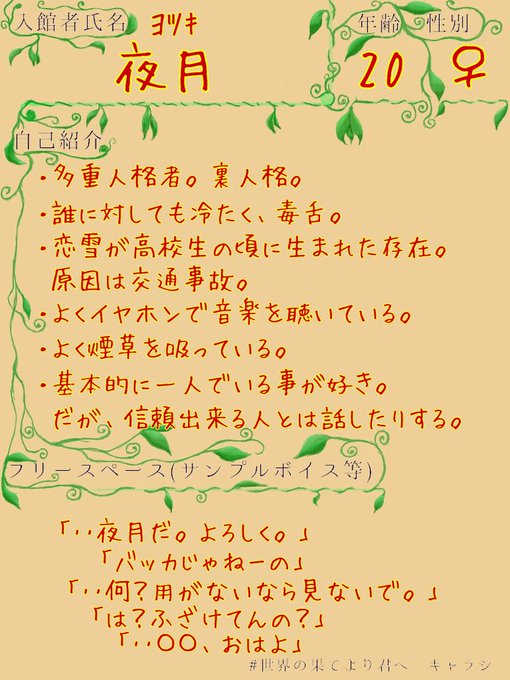 入館者氏名
ヨツキ
夜月
年齢 性別
20 ♀
自己紹介
・多重人格者。裏人格。
・誰に対しても冷たく、毒舌。
・恋雪が高校生の頃に生まれた存在。
原因は交通事故。
・よくイヤホンで音楽を聴いている。
・よく煙草を吸っている。
・基本的に一人でいる事が好き。
だが、信頼出来る人とは話したりする。
フリースペース(サンプルボイス等)
「‥夜月だ。よろしく。」
「バッカじゃねーの」
「‥何?用がないなら見ないで。」
「は?ふざけてんの?」
「‥〇〇、おはよ」
#世界の果てより君へ キャラシ